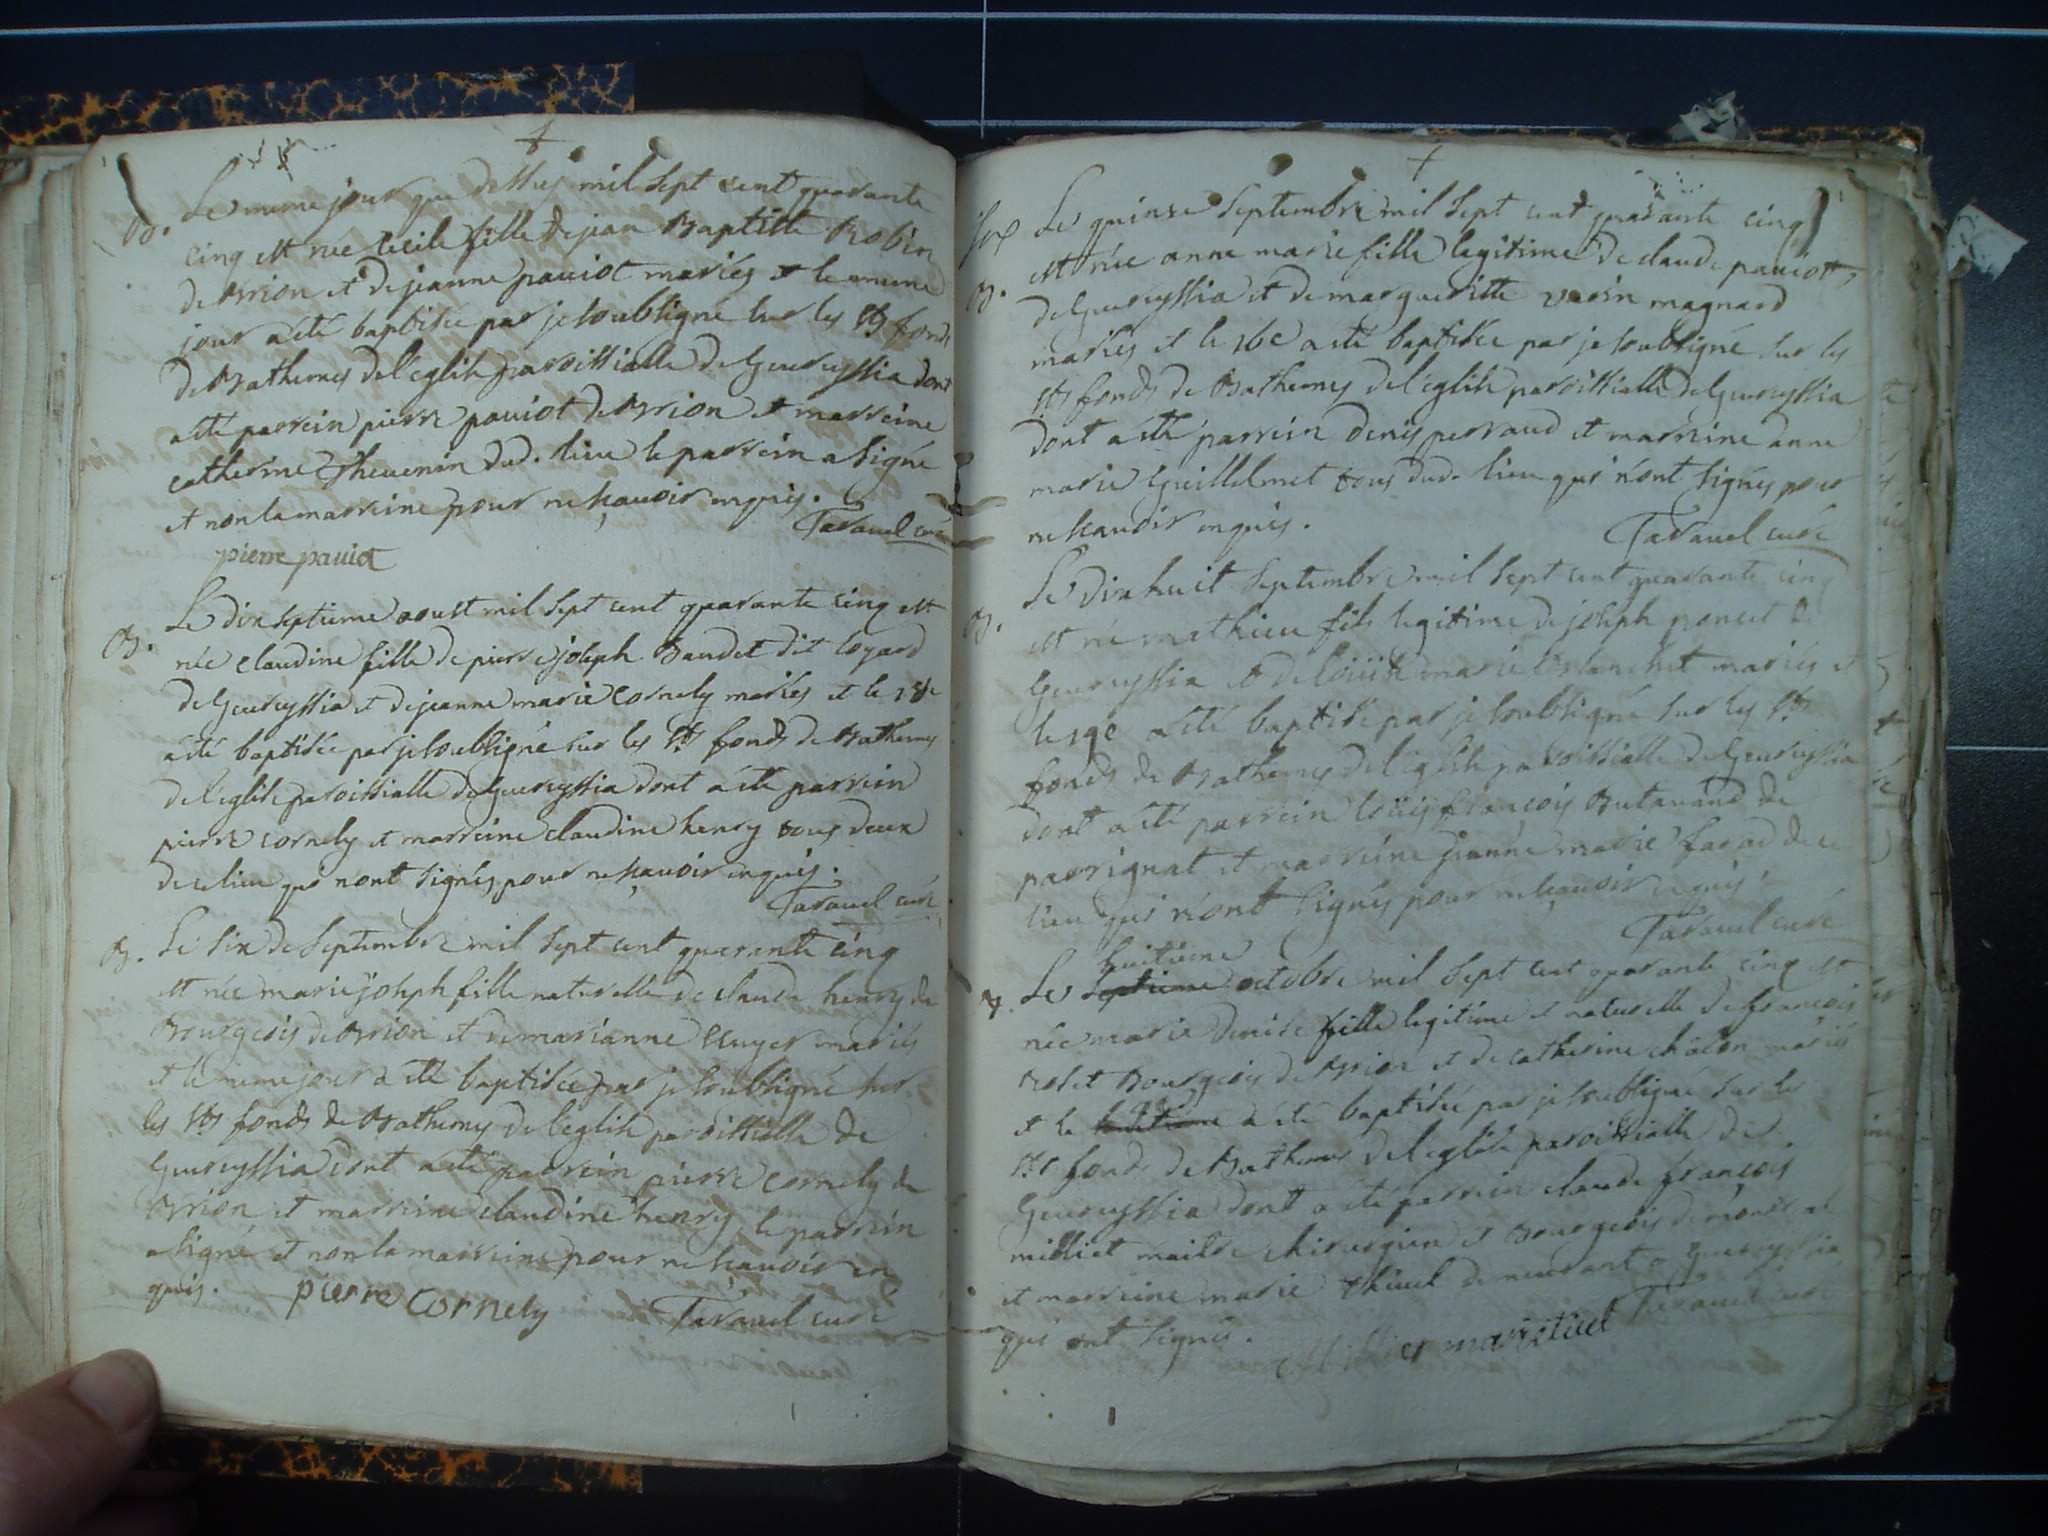 B. Le meme jour que dessus mil sept cent quarante
cinq est née cecile fille de jean Baptiste Robin
de Brion et de jeanne pauiot mariés et le meme
jour a été baptisée par je soubsigné sur les Sts fonds
de Bathemes de l'eglise paroissialle de Geurcyssia dont
a été parrein pierre pauiot de Brion et marreine
catherine Theuenin dud. lieu le parrein a signé
et non la marreine pour ne sçauoir enquis.
Tarauel curé
pierre pauiot
B. Le dix septieme aoust mil sept cent quarante cinq est
née claudine fille de pierre joseph Baudet dit
de Geurcyssia et de jeanne marie cornely mariés et le 18e
a été baptisée par je soubsigné sur les Sts fonds de Bathemes
de l'eglise paroissialle de Geurcyssia dont a été parrein
pierre cornely et marreine claudine henry tous deux
de ce lieu qui n'ont signés pour ne sçauoir enquis.
Tarauel curé
B. Le six de Septembre mil sept cent quarante cinq
est née marie joseph fille naturelle de claude henry de
Bourgeois de Brion et de marianne mariés
et le meme jour a été baptisée par je soubsigné sur
les Sts fonds de Bathemes de l'eglise paroissialle de
Geurcyssia dont a été parrein pierre cornely de
Brion et marreine claudine henry le parrein
a signé et non la marreine pour ne sçauoir en
quis. pierre cornely Tarauel curé
B. Le quinze Septembre mil sept cent quarante cinq
est née anne marie fille legitime de claude pauiot
de Geurcyssia et de margueritte verin magnard
mariés et le 16e a été baptisée par je soubsigné sur les
Sts fonds de Bathemes de l'eglise paroissialle de Geurcyssia
dont a été parrein denis perraud et marreine anne
marie Guillelmet tous dud. lieu qui n'ont signés pour
ne sçauoir enquis.
Tarauel curé
B. Le dix huit Septembre mil sept cent quarante cinq
est né mathieu fils legitime de joseph poncet de
Geurcyssia et de marie Blanchet mariés et
le 19e a été baptisé par je soubsigné sur les Sts
fonds de Bathemes de l'eglise paroissialle de Geurcyssia
dont a été parrein loüis françois Butauand de
parrignat et marreine jeanne marie de ce
lieu qui n'ont signés pour ne sçauoir enquis.
Tarauel curé
huitieme
B. Le septieme octobre mil sept cent quarante cinq est
née marie denise fille legitime et naturelle de francois
Bourgeois de Brion et de catherine châlon mariés
et le a été baptisée par je soubsigné sur les
Sts fonds de Bathemes de l'eglise paroissialle de
Geurcyssia dont a été parrein claude françois
milliet maitre chirurgien et Bourgeois de
et marreine marie demeurant a Geurcyssia
qui ont signés. Tarauel curé